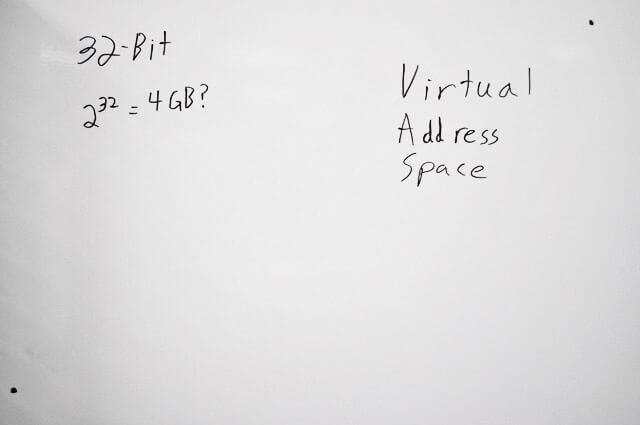 32-Bit
2³² = 4GB?
Virtual
Address
Space